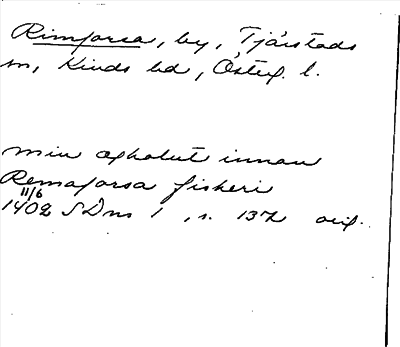 Rimforsa, by, Tjärstads
sn, Kinds hd, Österg. l.
min aghalut innan
Remaforsa fiskeri
11/6
1402 SDns 1, s. 132 orig.